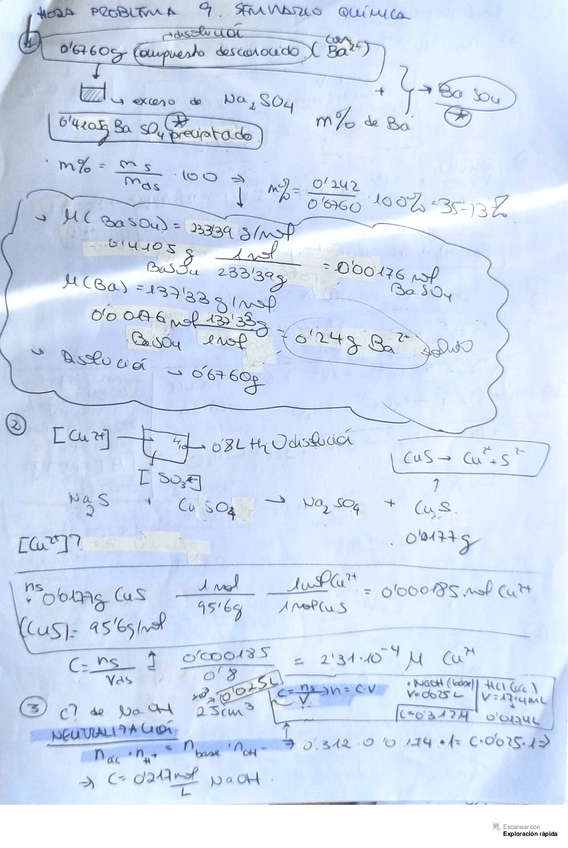 HOJA PROBLEMA 9. SEMINARIO QUÍMICA
① disolució
0'6760g (compuesto desconocido) (con Ba²⁺)
→ exceso de Na₂SO₄ + } → BaSO₄
0'4105g BaSO₄ precipitado m% de Ba
· m% = ms/mds · 100 ⇒ m% = 0'242/0'6760 · 100% = 35'13%
M(BaSO₄) = 233'39 g/mol
0'4105 g BaSO₄ 1 mol/233'39g = 0'00176 mol BaSO₄
M(Ba) = 137'33 g/mol
0'00176 mol BaSO₄ 137'33g/1 mol = 0'24g Ba²⁺ soluto
Disolució → 0'6760g
② [Cu²⁺] → 0'8L H₂O disolució
CuS → Cu²⁺ + S²⁻
Na₂S + CuSO₄ → Na₂SO₄ + CuS
[Cu²⁺]? 0'0177g
ns: 0'0177g CuS 1 mol/95'6g 1 mol Cu²⁺/1 mol CuS = 0'000185 mol Cu²⁺
(CuS) = 95'6g/mol
C = ns/Vds 0'000185/0'8 = 2'31·10⁻⁴ M Cu²⁺
③ c? de NaOH 25cm³ 0'025L
C = ns/V ⇒ n = C·V
NaOH (base) V = 0'025L
HCl (ác) V = 17'4mL
C = 0'312M 0'0174L
NEUTRALIZACIÓ
nác · nH⁺ = nbase · nOH⁻ ⇒ 0'312·0'0174·1 = C·0'025·1 ⇒
⇒ C = 0'217 mol/L NaOH
Escanear con
Exploración rápida